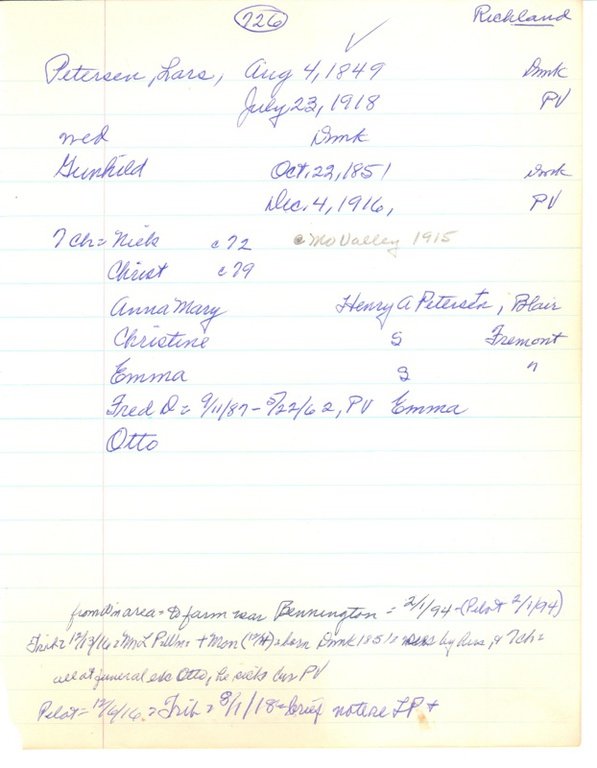 726 Richland
Petersen, Lars, Aug 4, 1849 Dmk
July 23, 1918 PV
wed Dmk
Gunhild Oct. 22, 1851 Dmk
Dec. 4, 1916, PV
7 ch = Nick c72 c Mo Valley 1915
Christ c79
Anna Mary Henry A Petersen, Blair
Christine S Fremont
Emma S "
Fred D = 9/11/87 - 5/22/62, PV Emma
Otto
from area = to farm near Bennington = 2/1/94 - (Pilot 2/1/94)
Trib = 12/13/16 = Mrs L P + Mon born Dmk 1851 = by & 7 ch =
all at funeral Otto, he sick bur PV
Pilot = 12/6/16. = Trib = 8/1/18 = brief notice LP +